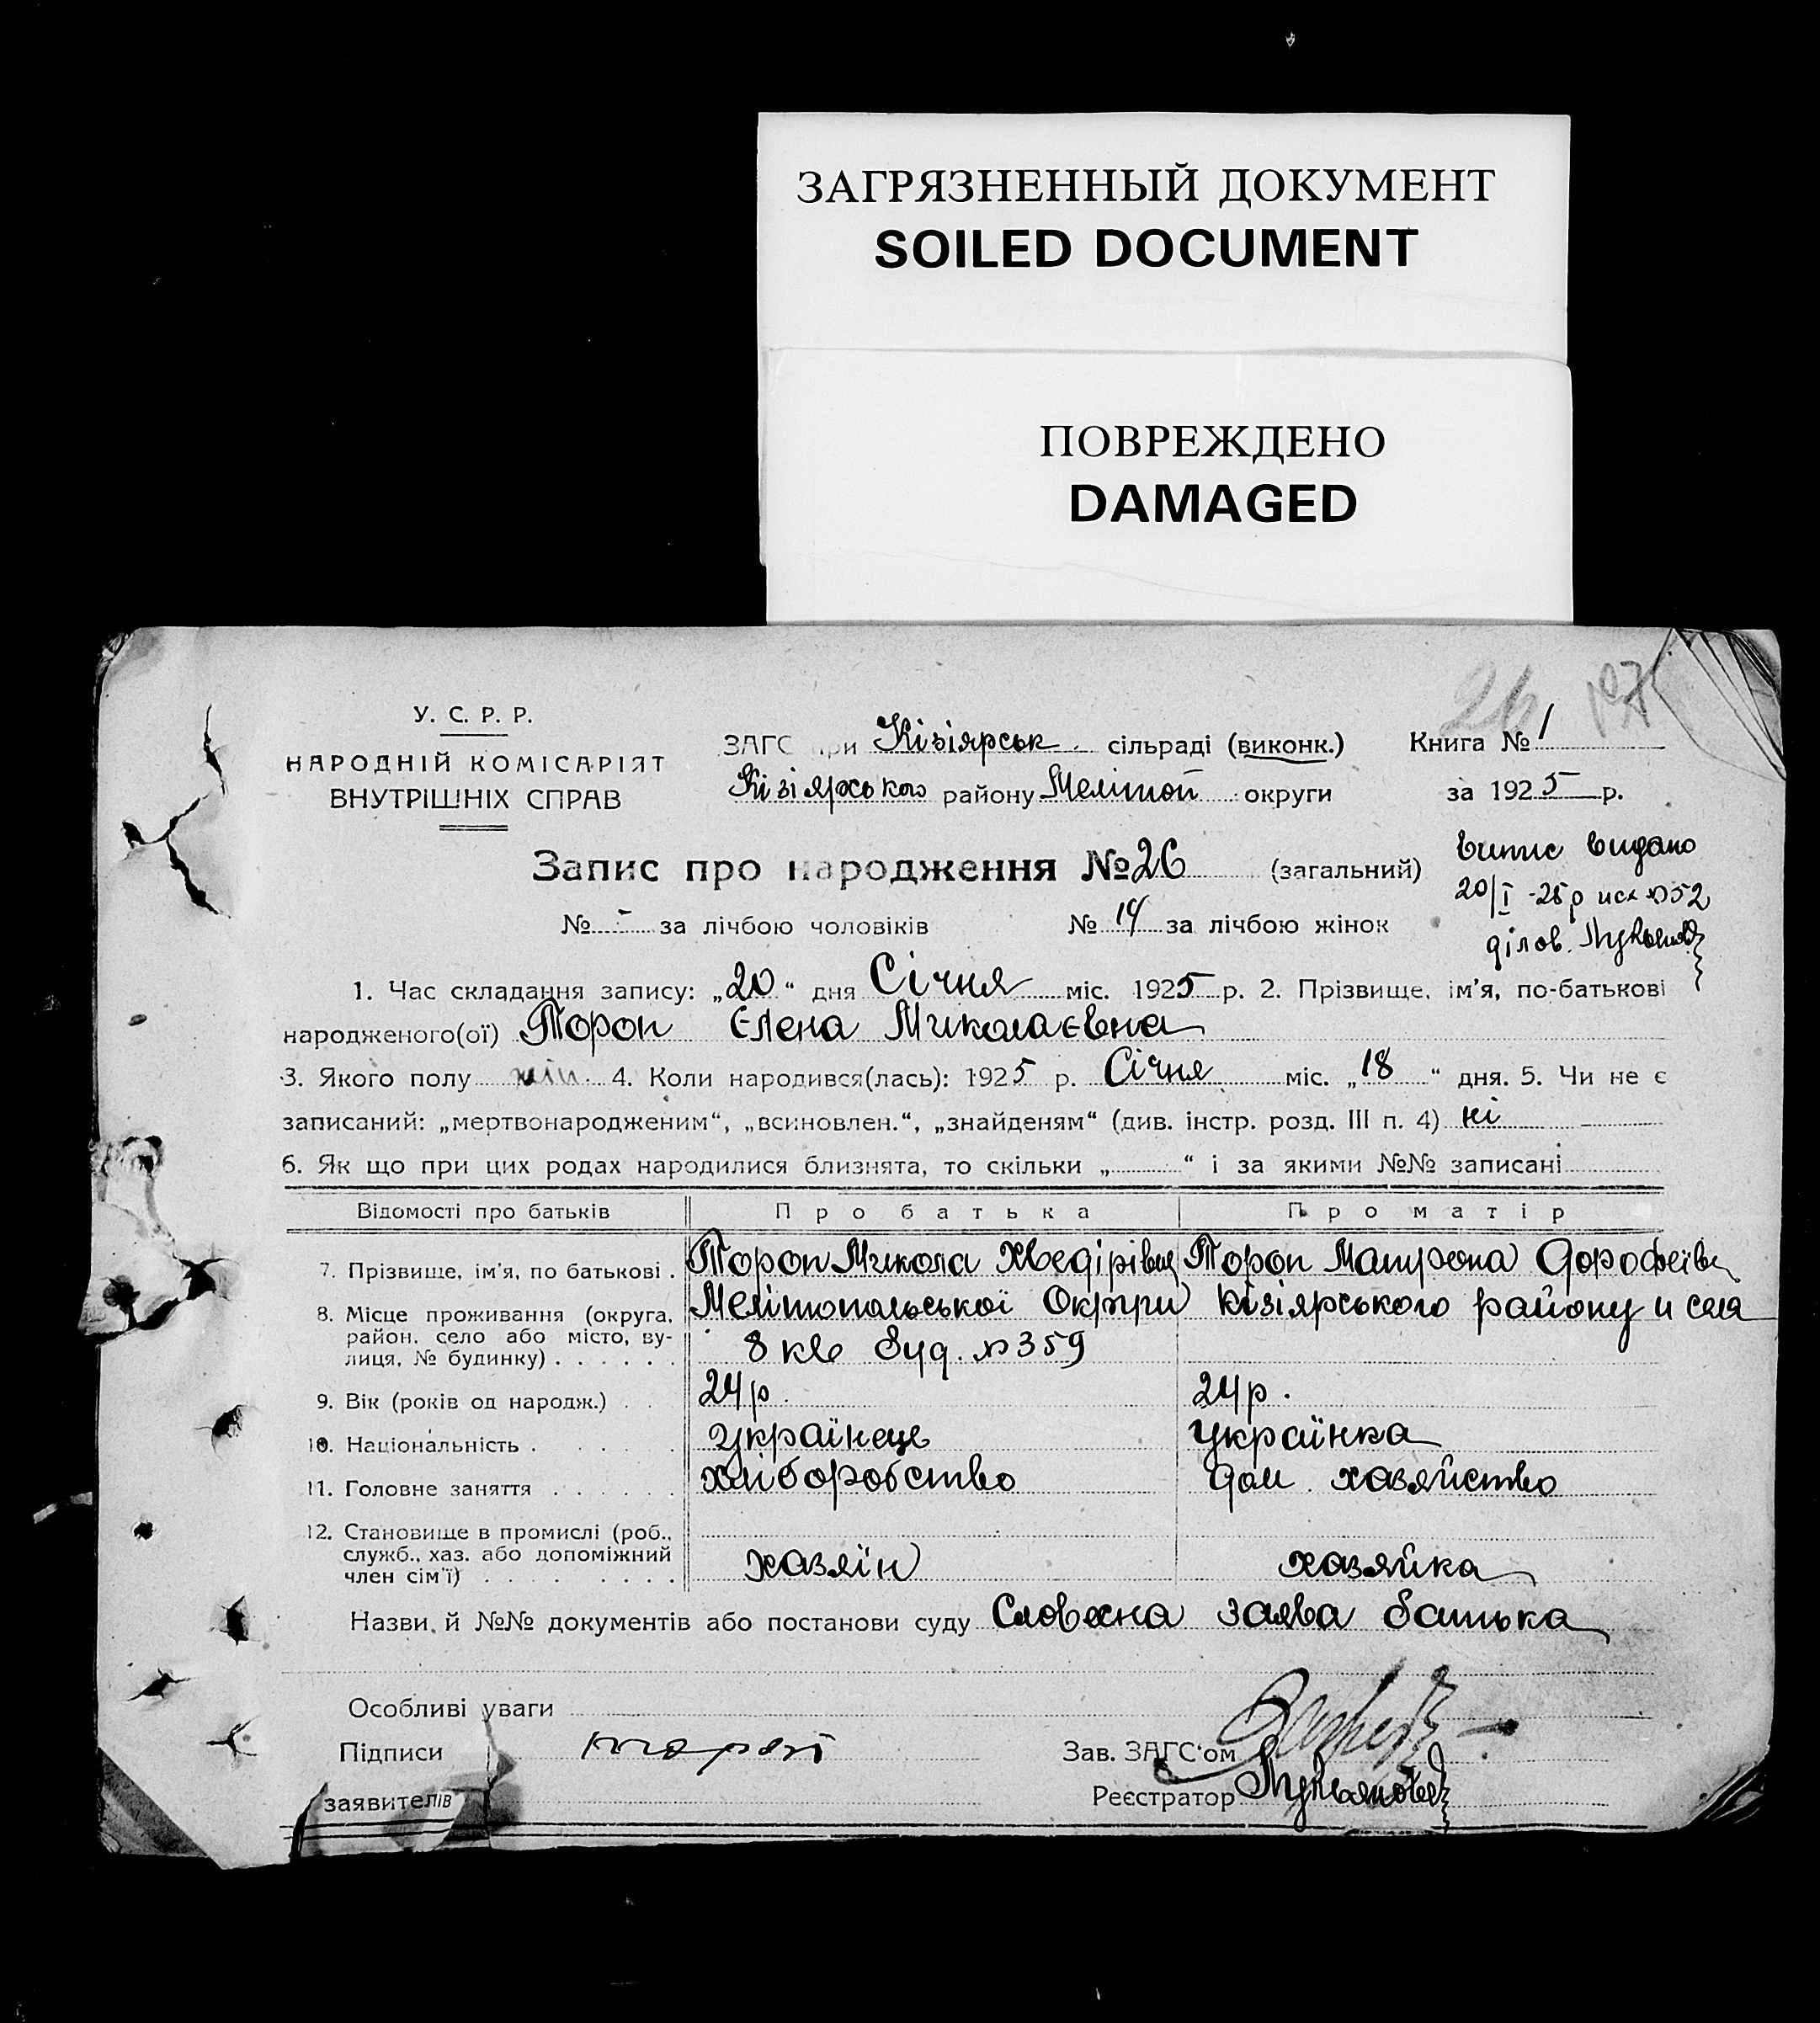 ЗАГРЯЗНЕННЫЙ ДОКУМЕНТ
SOILED DOCUMENT
ПОВРЕЖДЕНО
DAMAGED
26 197
У. С. Р. Р.
НАРОДНІЙ КОМІСАРІЯТ
ВНУТРІШНІХ СПРАВ
ЗАГС при Кізіярськ. сільраді (виконк.) Книга № 1
Кізіярського району Мелітоп округи за 1925 р.
Запис про народження № 26 (загальний)
випис видано
20/I -25р исх №52
ділов.
№ - за лічбою чоловіків № 14 за лічбою жінок
1. Час складання запису: „20“ дня Січня міс. 1925 р. 2. Прізвище, ім’я, по-батькові
народженого(ої) Торон Єлена Миколаєвна
3. Якого полу жін. 4. Коли народився(лась): 1925 р. Січня міс. „18“ дня. 5. Чи не є
записаний: „мертвонародженим“, „всиновлен.“, „знайденям“ (див. інстр. розд. III п. 4) ні
6. Як що при цих родах народилися близнята, то скільки „ “ і за якими №№ записані
Відомості про батьків Про батька Про матір
7. Прізвище, ім’я, по батькові . Торон Микола Хведірівич Торон Матрона Дорофеївн
8. Місце проживання (округа, район, село або місто, вулиця, № будинку) . . . . . . Мелітопольської Округи Кізіярського району и села
8 кв буд. №359
9. Вік (років од народж.) . . 24р. 24р.
10. Національність . . . . . українець українка
11. Головне заняття . . . . . . хліборобство дом. хазяйство
12. Становище в промислі (роб., служб., хаз. або допоміжний член сім’ї) . . . . . . . . хазяїн хазяйка
Назви й №№ документів або постанови суду Словесна заява батька
Особливі уваги
Підписи торон Зав. ЗАГС’ом
заявителів Реєстратор Лукьянова